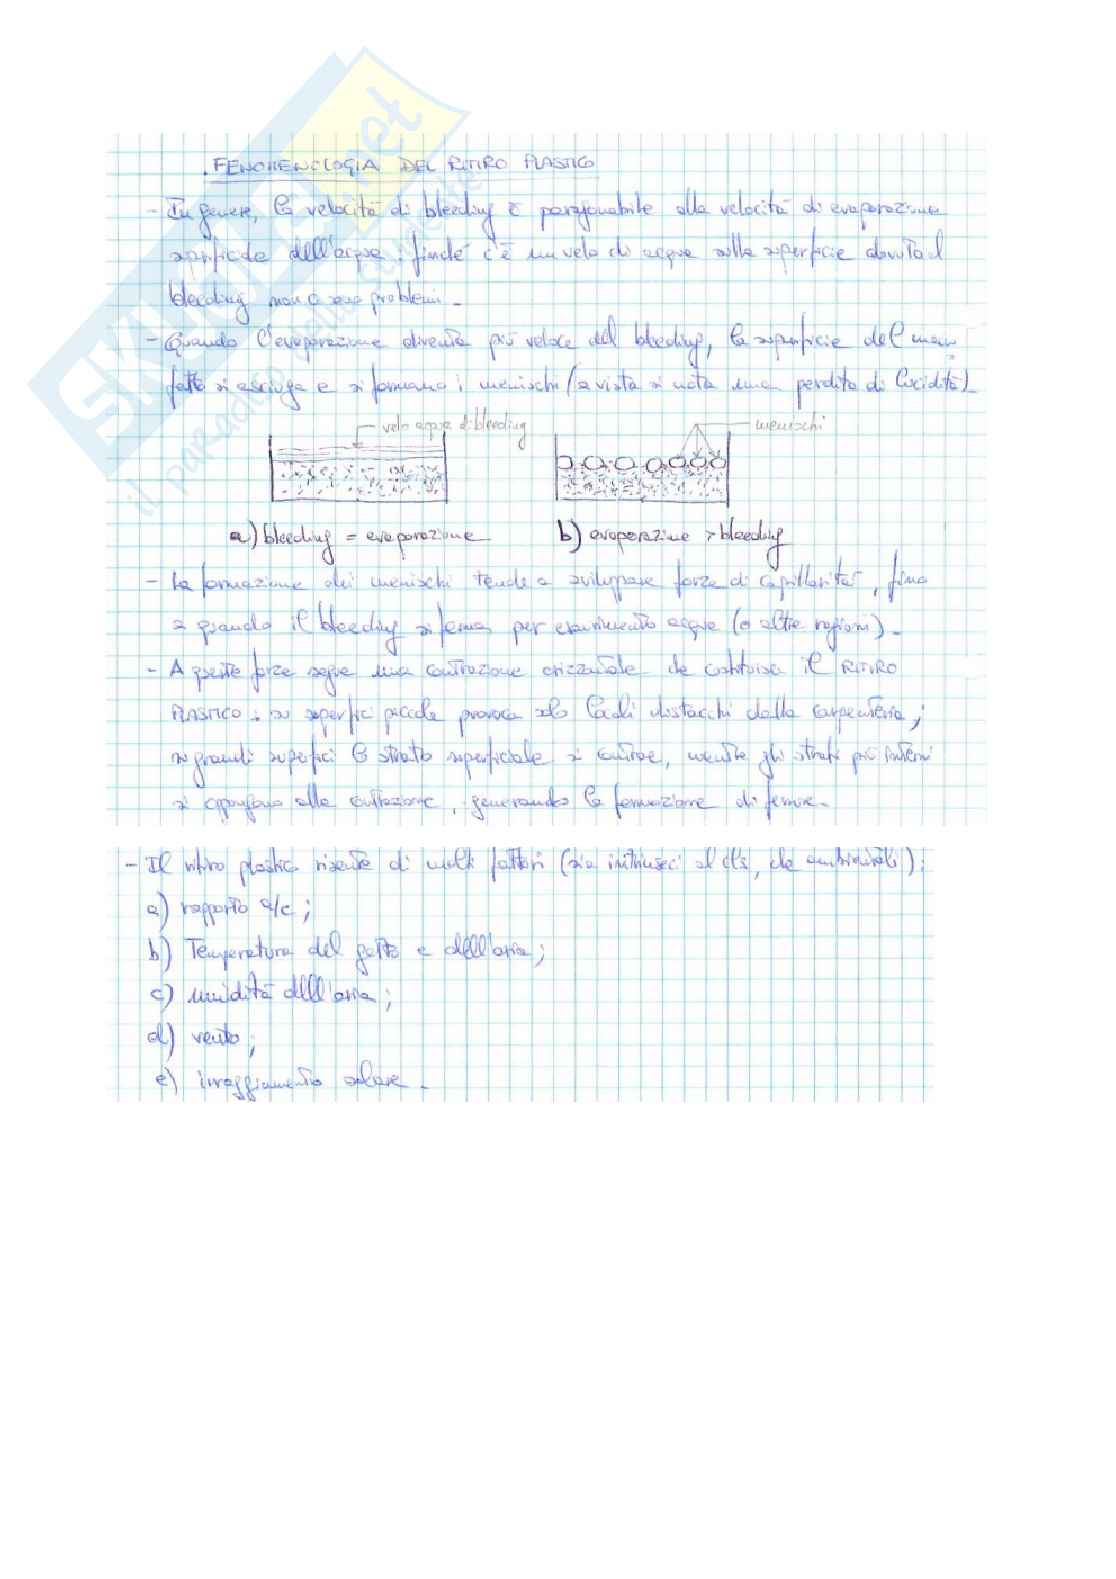 SKUOLA.net
il paradiso dello studente
. FENOMENOLOGIA DEL RITIRO PLASTICO
- In genere, la velocità di bleeding è paragonabile alla velocità di evaporazione
superficiale dell'acqua: finché c'è un velo di acqua sulla superficie dovuto al
bleeding non ci sono problemi.
- Quando l'evaporazione diventa più veloce del bleeding, la superficie del manu-
fatto si asciuga e si formano i menischi (a vista si nota una perdita di lucidità).
velo acqua di bleeding
menischi
a) bleeding = evaporazione
b) evaporazione > bleeding
- La formazione dei menischi tende a sviluppare forze di capillarità, fino
a quando il bleeding si ferma per esaurimento acqua (o altre ragioni).
- A queste forze segue una contrazione orizzontale che costituisce il RITIRO
PLASTICO: su superfici piccole provoca solo lievi distacchi dalla carpenteria;
su grandi superfici lo strato superficiale si contrae, mentre gli strati più interni
si oppongono alla contrazione, generando la formazione di fessure.
- Il ritiro plastico risente di molti fattori (sia intrinseci al cls, che ambientali):
a) rapporto a/c;
b) Temperatura del getto e dell'aria;
c) umidità dell'aria;
d) vento;
e) irraggiamento solare.